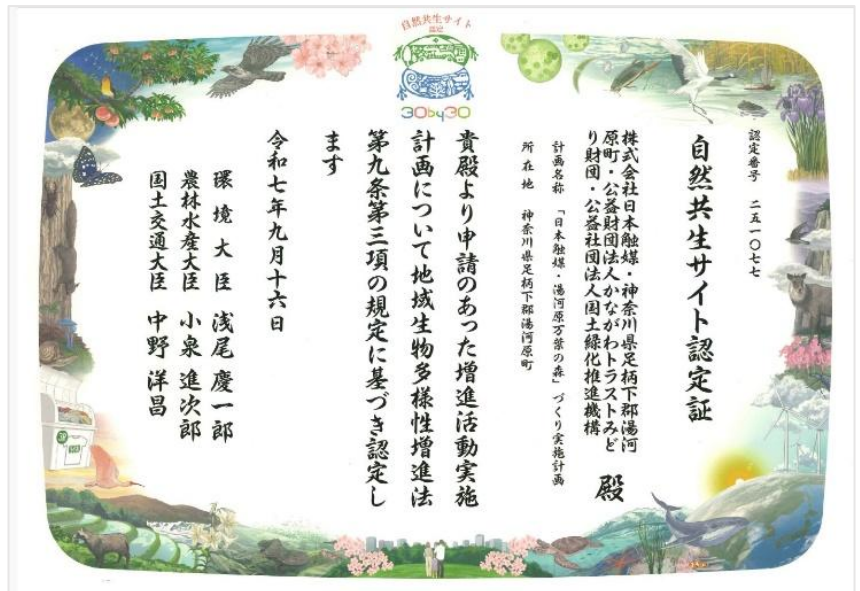 自然共生サイト
認定
30by30
認定番号 二五一〇七七
自然共生サイト認定証
株式会社日本触媒・神奈川県足柄下郡湯河
原町・公益財団法人かながわトラストみど
り財団・公益社団法人国土緑化推進機構
殿
計画名称 「日本触媒・湯河原万葉の森」づくり実施計画
所在地 神奈川県足柄下郡湯河原町
貴殿より申請のあった増進活動実施
計画について地域生物多様性増進法
第九条第三項の規定に基づき認定し
ます
令和七年九月十六日
環境大臣 浅尾慶一郎
農林水産大臣 小泉進次郎
国土交通大臣 中野洋昌